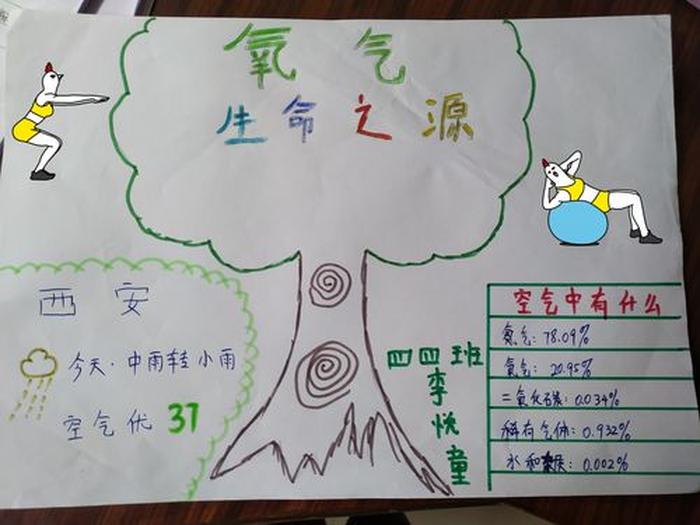 氧气
生命之源
西安
今天·中雨转小雨
空气优 37
四四班
李悦童
空气中有什么
氮气:78.09%
氧气:20.95%
二氧化碳:0.034%
稀有气体:0.932%
水和:0.002%